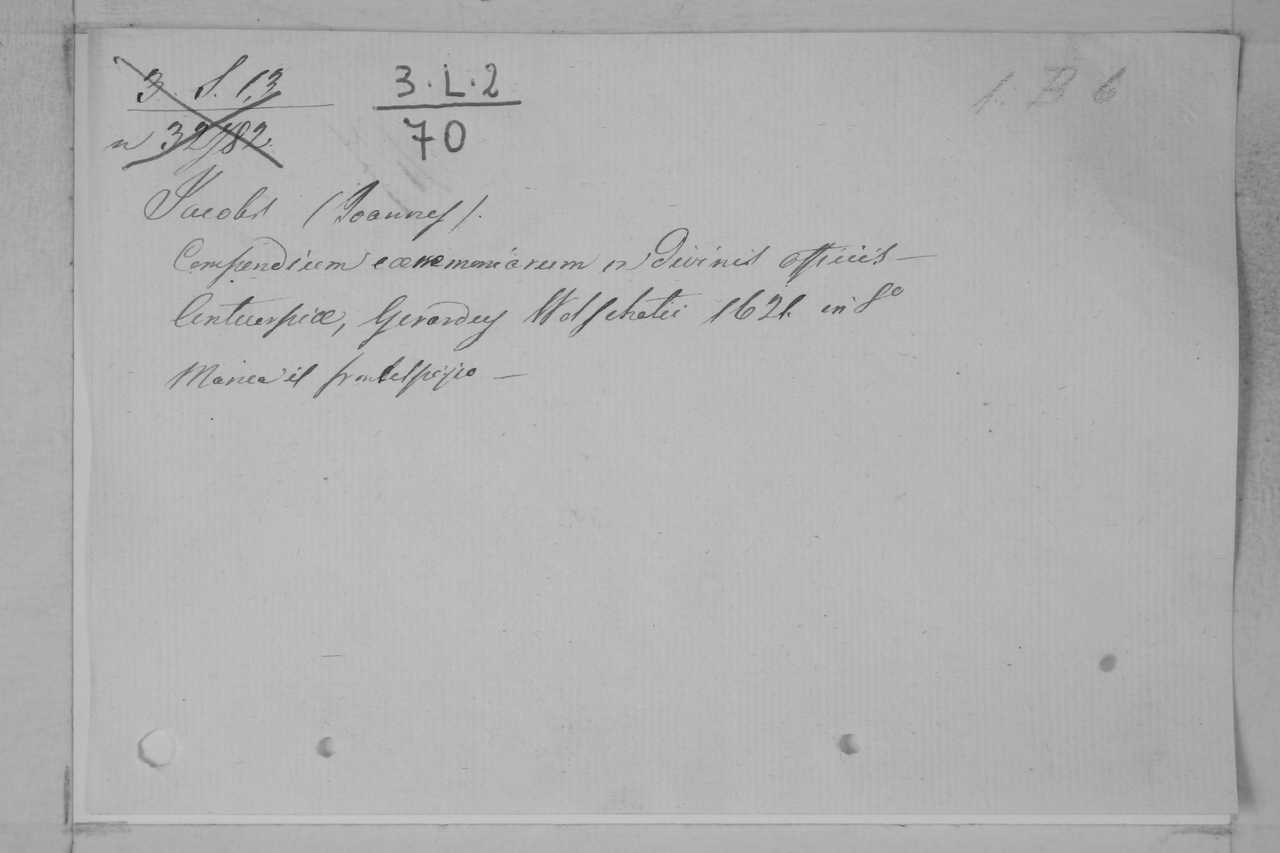 3. S. 13
n 32782.
3.L.2
70
1. B 6
Jacobs (Joannes).
Compendium caeremoniarum in Divinis officiis —
Antuerpiae, Gerardus Wolschatii 1621. in 8°
Manca il frontespizio —